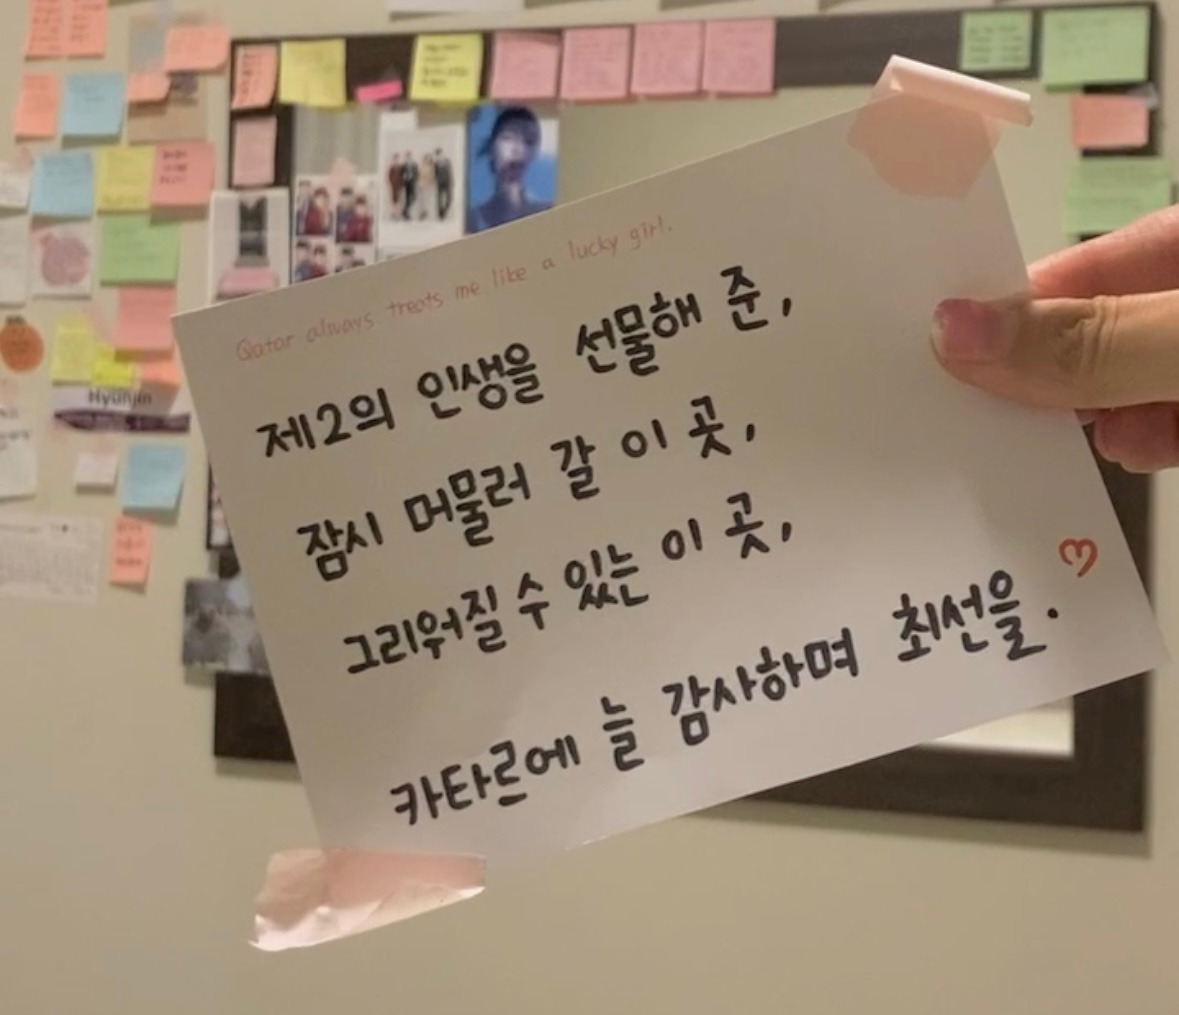 Qatar always treats me like a lucky girl.
제2의 인생을 선물해 준,
잠시 머물러 갈 이 곳,
그리워질 수 있는 이 곳,
카타르에 늘 감사하며 최선을.
Hyunjin